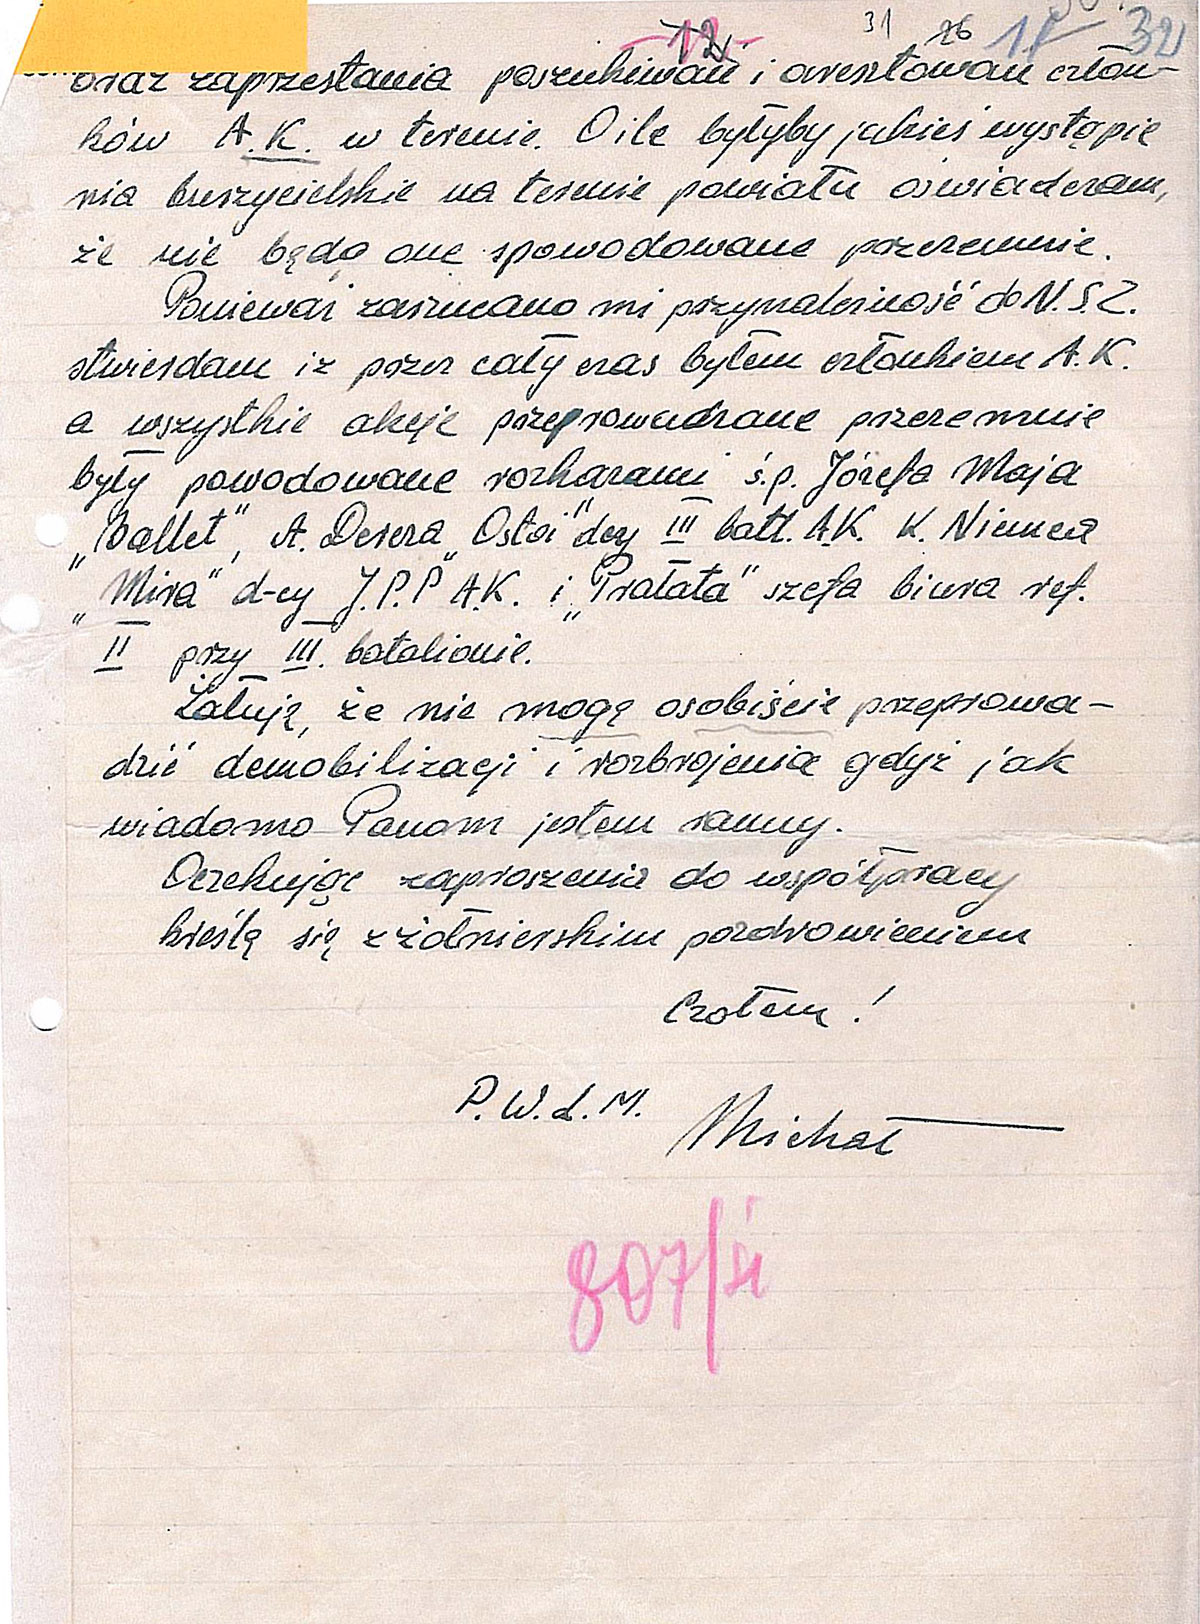 12
31 26 11 32
oraz zaprzestania poszukiwań i aresztowań człon-
ków A.K. w terenie. O ile byłyby jakieś wystąpie
nia burzycielskie na terenie powiatu oświadczam,
że nie będą one spowodowane przezemnie.
Ponieważ zarzucano mi przynależność do N.S.Z.
stwierdam iż przez cały czas byłem członkiem A.K.
a wszystkie akcje przeprowadzane przezemnie
były powodowane rozkazami ś.p. Józefa Maja
„Ballet", A. Desera „Ostoi" dcy III batl. A.K. K. Niemca
„Mira" d-cy J.P.P" A.K. i „Prałata" szefa biura ref.
II przy III. batalionie.
Żałuję, że nie mogę osobiście przeprowa-
dzić demobilizacji i rozbrojenia gdyż jak
wiadomo Panom jestem ranny.
Oczekując zaproszenia do współpracy
kreślę się z żołnierskim pozdrowieniem
Czołem!
P.W.d.M. Michał
807/